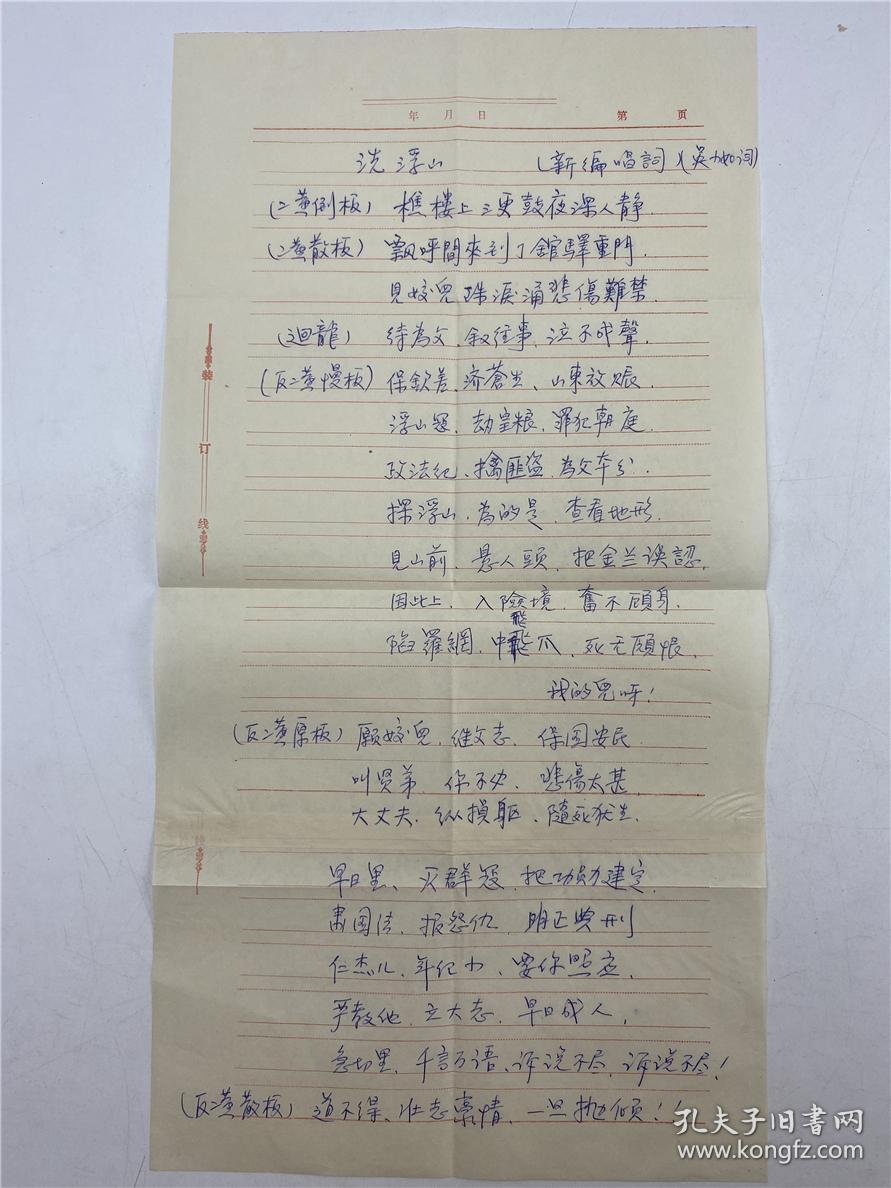 年 月 日 第 页
洗浮山 (新编唱詞)(吴 如词)
(二黄倒板) 樵樓上三更鼓夜深人静.
(二黄散板) 飘呼間來到了舘驛重門.
見姣兒珠淚涌悲傷難禁.
(迴龍) 待為父.叙往事.泣不成聲.
(反二黄慢板) 保欽差、济蒼生、山東放赈.
浮山寇.劫皇粮.罪犯朝庭.
政法纪、擒匪盗.為父本分.
探浮山.為的是.查看地形.
見山前.悬人頭.把金兰误認.
因此上.入險境.奮不顧身.
飛
陷羅網.中飛爪.死无願恨.
我的兒呀!
(反二黄原板) 願姣兒.继父志.保国安民
叫贤弟.你不必.悲傷太甚.
大丈夫.纵損躯.隨死犹生.
早日里、灭群寇.把功勋建定.
肃国法.报怨仇.明正典刑
仁杰儿.年纪小、要你照应.
严教他.立大志.早日成人.
急切里.千言万语、诉说不尽.诉说不尽!
(反二黄散板) 道不得、壮志豪情.一旦抛倾!!
装
订
线
线
孔夫子旧書网
www.kongfz.com